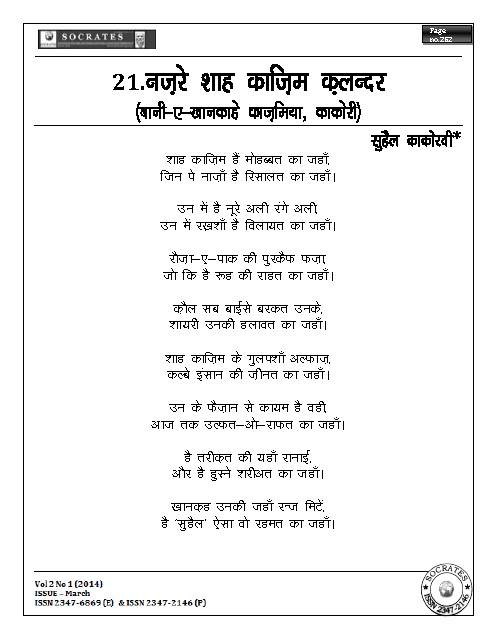 SOCRATES
Page no.262
21.नज़रे शाह काज़िम क़लन्दर
(षानी-ए-खानकाहे काज़मिया, काकोरी)
सुहैल काकोरवी*
शाह काज़िम हैं मोहब्बत का जहाँ,
जिन पे नाज़ाँ है रिसालत का जहाँ।
उन में है नूरे अली रंगे अली,
उन में रख़शाँ है विलायत का जहाँ।
रौज़ा-ए-पाक की पुरकैफ फज़ा,
जो कि है रूह की राहत का जहाँ।
कौल सब बाईसे बरकत उनके,
शायरी उनकी हलावत का जहाँ।
शाह काज़िम के गुलफ्शाँ अल्फाज़,
कल्बे इंसान की ज़ीनत का जहाँ।
उन के फैज़ान से कायम है वही,
आज तक उल्फत-ओ-राफत का जहाँ।
है तरीक़त की यहाँ रानाई,
और है हुस्ने शरीअत का जहाँ।
खानकह उनकी जहाँ रन्ज मिटें,
है 'सुहैल' ऐसा वो रहमत का जहाँ।
Vol 2 No 1 (2014)
ISSUE – March
ISSN 2347-6869 (E) & ISSN 2347-2146 (P)
SOCRATES
ISSN 2347-2146